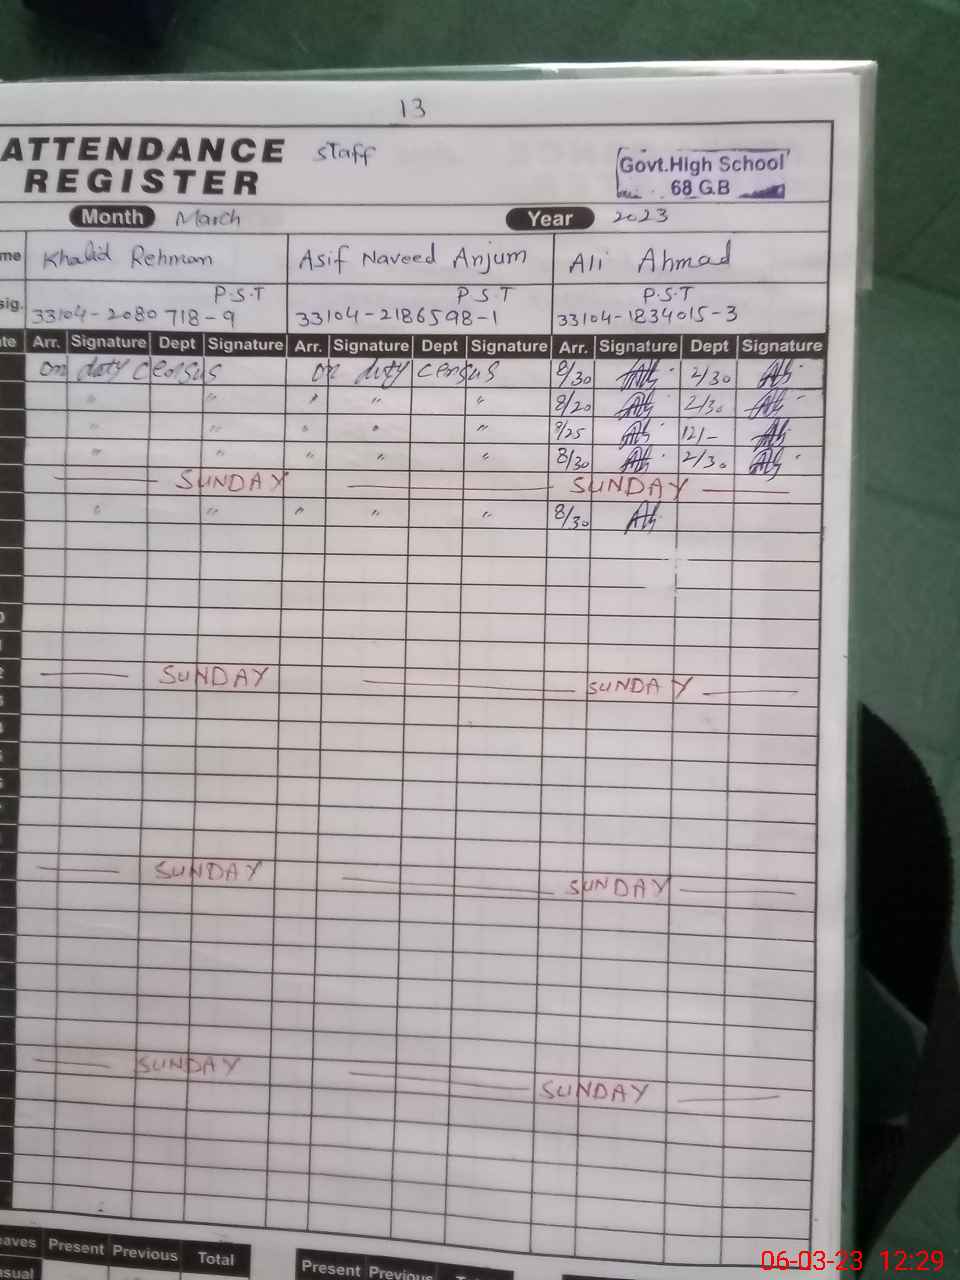 13
ATTENDANCE Staff
REGISTER
Govt.High School
68 G.B
Month March Year 2023
me Khalid Rehman Asif Naveed Anjum Ali Ahmad
sig. P.S.T P.S.T P.S.T
33104-2080718-9 33104-2186598-1 33104-1834015-3
te Arr. Signature Dept Signature Arr. Signature Dept Signature Arr. Signature Dept Signature
on duty census on duty census 8/30 2/30
" " " " " 8/20 2/30
" " " " " 8/25 12/-
" " " " " 8/30 2/30
SUNDAY SUNDAY
" " " " " 8/30
SUNDAY SUNDAY
SUNDAY SUNDAY
SUNDAY SUNDAY
eaves Present Previous Total Present Previous
asual
06-03-23 12:29